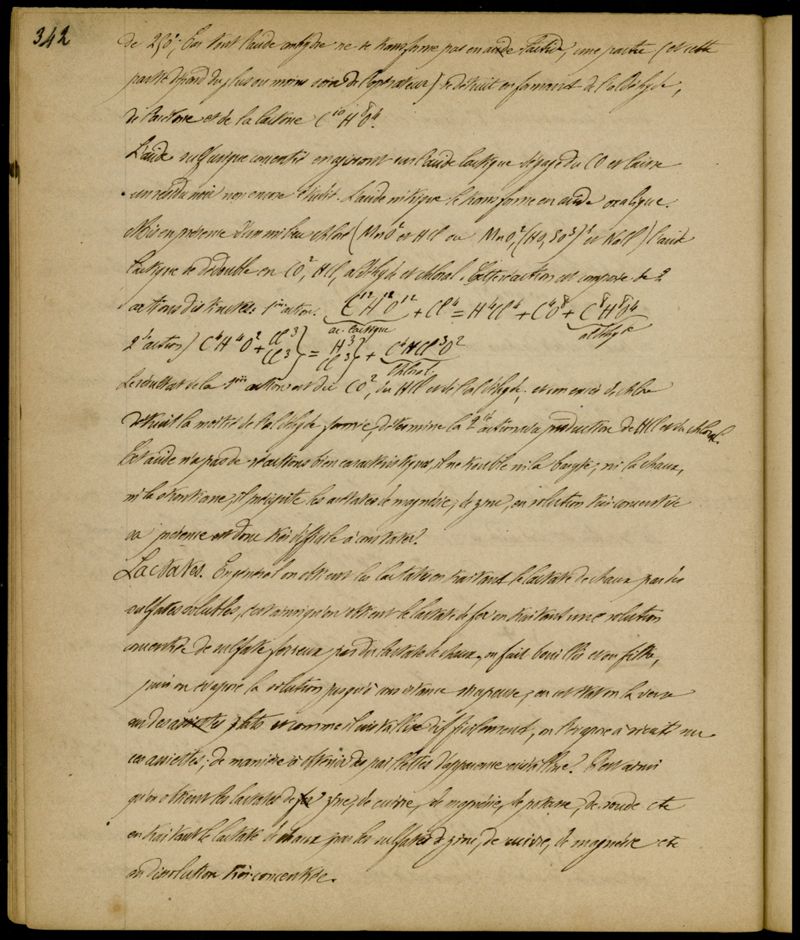 342
de 250°; Car tout l'acide employé ne se transforme pas en acide lactide, une partie (et cette
partie dépend du plus ou moins soin de l'opérateur) se détruit en formant de l'aldéhyde,
de l'acétone et de la lactone C¹⁰H⁸O⁴.
L'acide sulfurique concentré en agissant sur l'acide lactique dégage du CO et laisse
un résidu noir non encore étudié. L'acide nitrique le transforme en acide oxalique.
Mis en présence d'un milieu chloré (MnO² et HCl ou MnO², (HO, SO³)² et NaCl) l'acide
lactique se dédouble en CO², HCl, aldéhyde et chloral. Cette réaction est composée de 2
actions distinctes. 1ère action. C¹²H¹²O¹² + Cl⁴ = H⁴Cl⁴ + C⁴O⁸ + C⁸H⁸O⁴
ac. lactique aldéhyde
2e action) C⁴H⁴O² + Cl³ Cl³} = H³ Cl³} + C⁴HCl³O²
Chloral.
Le résultat de la 1ère action est du CO², du HCl et de l'aldéhyde; et un excès de chlore
détruit la moitié de l'aldéhyde formée, détermine la 2e action ou production de HCl et du chloral.
Cet acide n'a pas de réactions bien caractéristiques, il ne trouble ni la baryte, ni la chaux,
ni la strontiane; il précipite les acétates de magnésie, de zinc, en solution très concentrée
sa présence est donc très difficile à constater.
Lactates. En général on obtient les lactates en traitant le lactate de chaux par des
sulfates solubles, c'est ainsi qu'on obtient le lactate de fer en traitant une solution
concentrée de sulfate ferreux par du lactate de chaux, on fait bouillir et on filtre,
puis on évapore la solution jusqu'à consistance sirupeuse, en cet état on la verse
sur des assiettes plates et comme il cristallise difficilement, on l'évapore à siccité sur
ces assiettes; de manière à obtenir des paillettes d'apparence cristalline. C'est ainsi
qu'on obtient les lactates de fer zinc, de cuivre, de magnésie, de potasse, de soude etc
en traitant le lactate de chaux par les sulfates de zinc, de cuivre, de magnésie etc
en dissolution très concentrée.